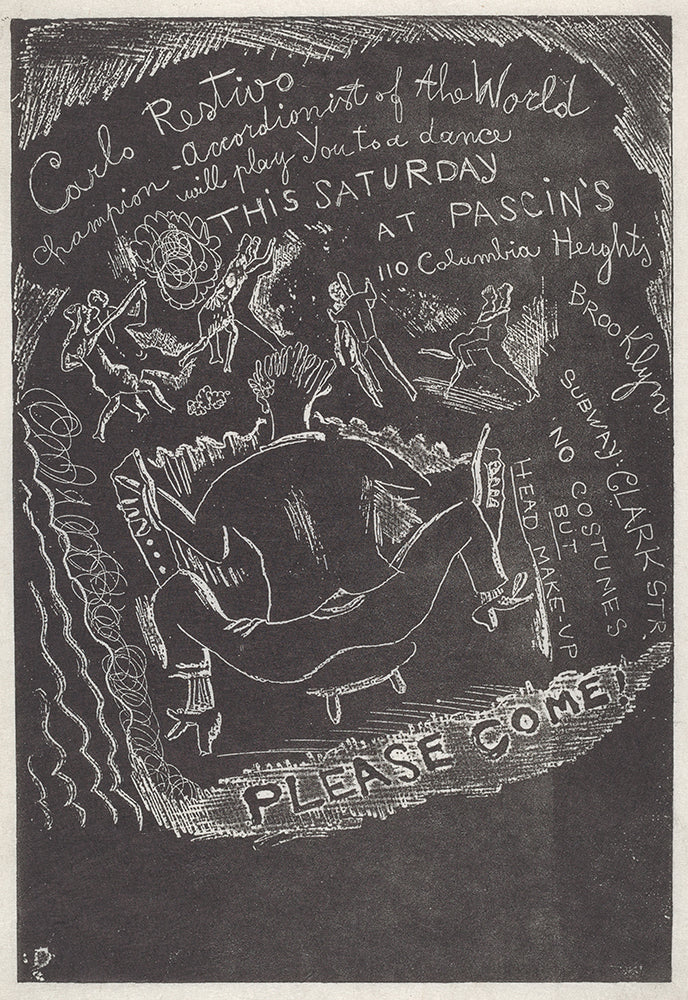 Carlo Restivo
champion - accordionist of the World
will play You to a dance
THIS SATURDAY
AT PASCIN'S
110 Columbia Heights
BROOKlyn
SUBWAY: CLARK STR.
NO COSTUMES
BUT
HEAD MAKE-UP
PLEASE COME!